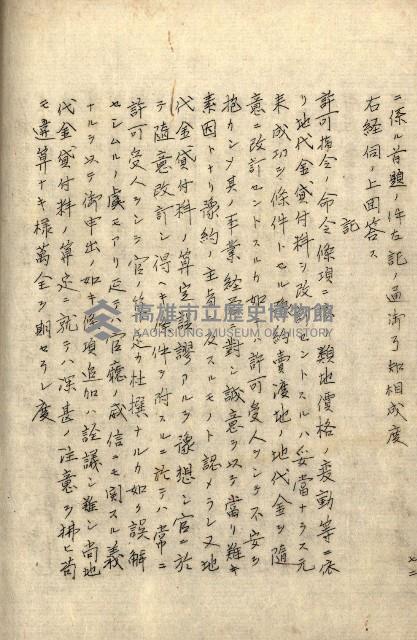 ニ係ル首題ノ件左記ノ通御了知相成度
右経伺ノ上回答ス
記
許可指令ノ命令條項ニ類地價格ノ変動等ニ依
リ地代金貸付料ヲ改訂セントスルハ妥當ナラス元
来成功ヲ條件トセル豫約賣渡地ノ地代金ヲ隨
意ニ改訂セントスルカ如キハ許可受人ヲシテ不安ヲ
抱カシメ其ノ事業経営ニ對シ誠意ヲ以テ當リ難キ
素因トナリ豫約ノ主旨ニ反スルモノト認メラレ又地
代金貸付料ノ算定ニ誤謬アルヲ豫想シ官ニ於
テ隨意改訂シ得ヘキ條件ヲ附スルニ於テハ常ニ
許可受人ヲシテ官ノ算定カ杜撰ナルカ如ク誤解
セシムルノ虞モアリ延テ官廳ノ威信ニモ関スル義
ナルヲ以テ御申出ノ如キ條項追加ハ詮議シ難シ尚地
代金貸付料ノ算定ニ就テハ深甚ノ注意ヲ拂ヒ苟
モ違算ナキ様萬全ヲ期セラレ度
高雄市立歷史博物館
KAOHSIUNG MUSEUM OF HISTORY